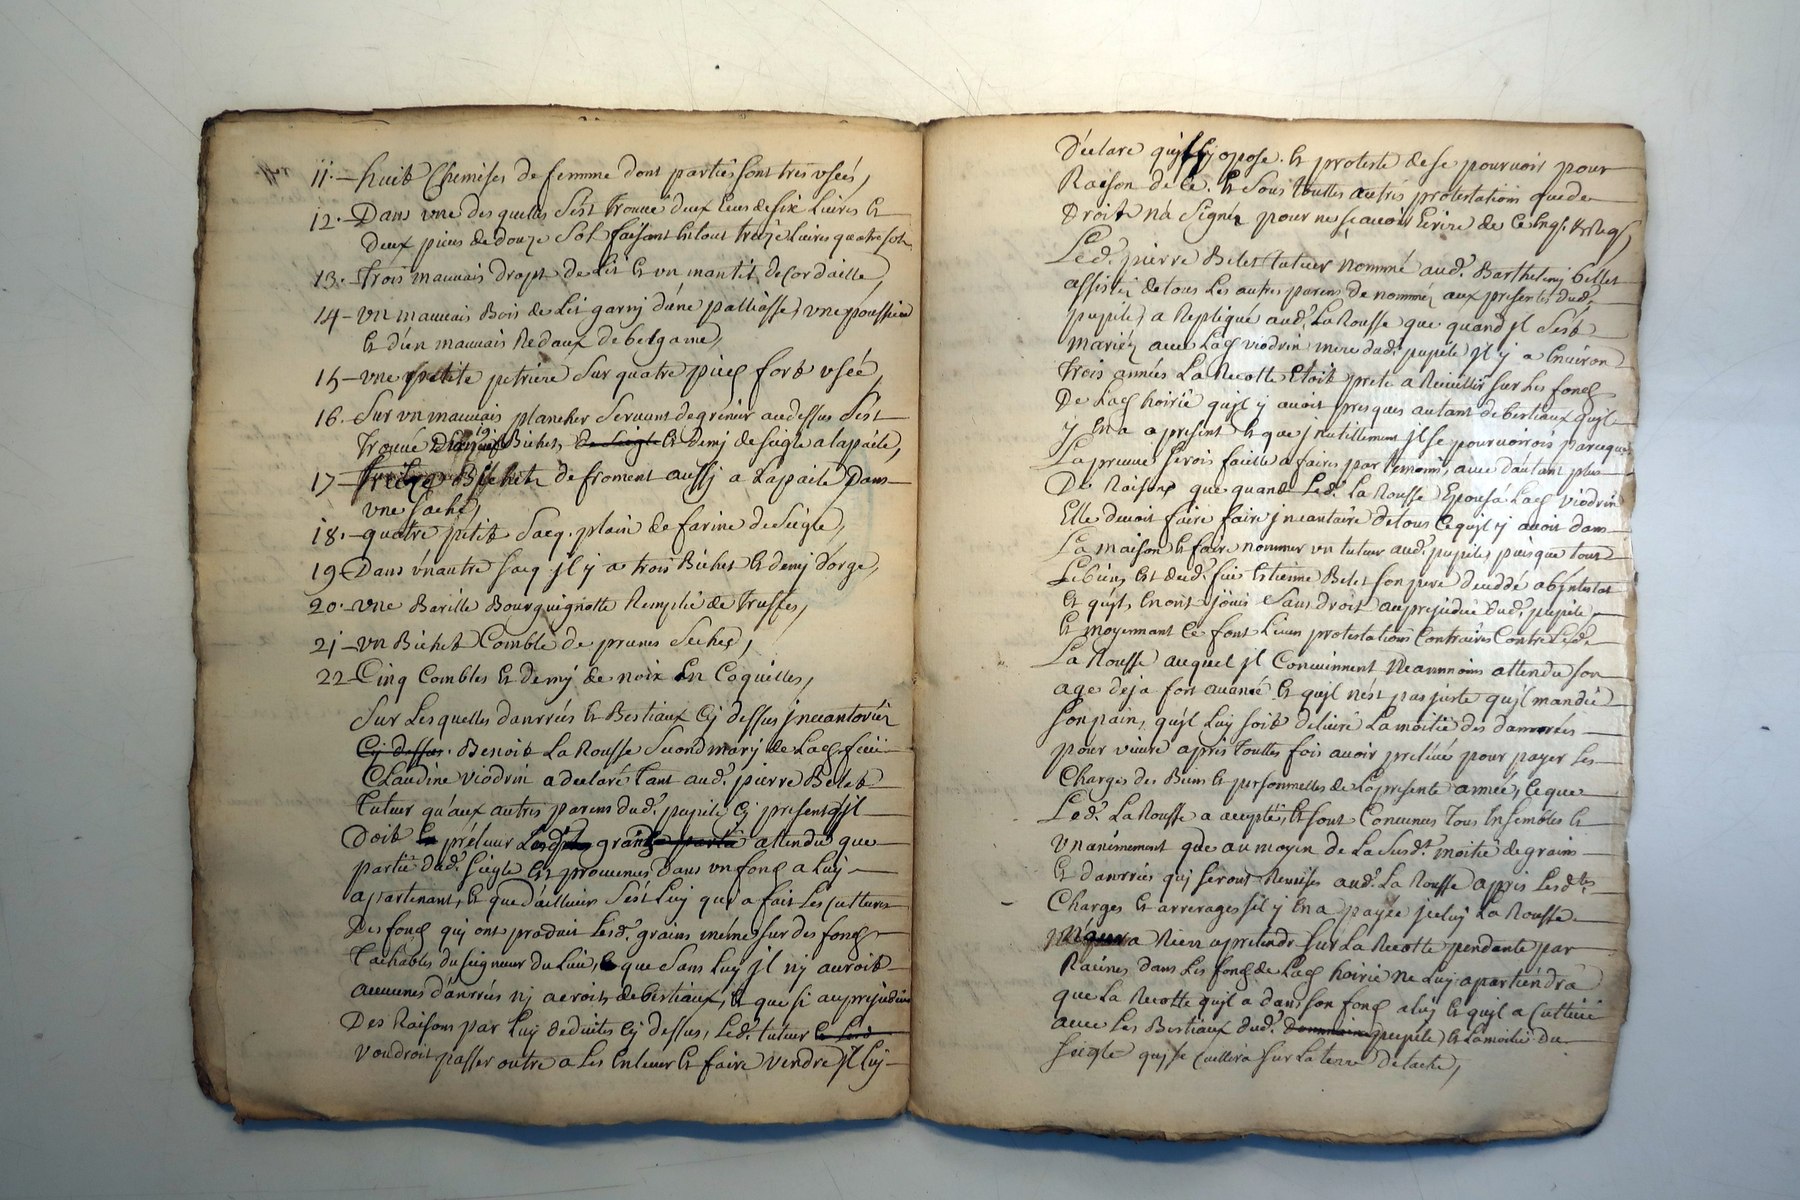 11. – huit Chemises de femme dont partie sont tres usées,
12. – Dans une des quelles s'est trouvé deux Ecus de six Livres et
deux pieces de douze sol faisant en tout treize Livres quatre sol
13. – trois mauvais draps de Lit et un mantit de Cordaille,
14 – un mauvais Bois de Lit garny d'une palliasse, une poussiere
et d'un mauvais Redaux de bergame,
15 – une petite petriere sur quatre pieq fort usée,
16. – Sur un mauvais plancher servant de grenier au dessus s'est
trouvé 19 Bichets de seigle et demy de seigle a la paile,
17 – treize Bichets de froment aussy a la paile Dans
une sache,
18. – quatre petit sacq. plain de farine de seigle,
19 – Dans un autre sacq il y a trois Bichet et demy d'orge,
20. – une Barille Bourguignotte Remplie de truffes,
21 – un Bichet Comble de prunes seches,
22 – Cinq Combles et demy de noix En Coquilles,
Sur Les quelles danrrées et Bestiaux Cy dessus jnvantoriez
Cy dessus. Benoit La Rousse second mary de Laq. feüe
Claudine Viodrin a declaré tant aud. pierre Belet
tuteur qu'aux autres parens dud. pupile Cy presents qu'il
Doit prélever grains attendu que
partie dud. seigle Est provenue dans un fonq a Luy
apartenant, et que d'ailleurs s'est Luy qui a fait Les cultures
Des fonq qui ont produit Lesd. grains même sur des fonq
tachables du seigneur du Lieu, que sans Luy jl n'y auroit
aucunes danrrées ny de bestiaux, et que si au prejudice
Des Raisons par Luy deduites Cy dessus, Led. tuteur
voudroit passer outre a Les Enlever et faire vendre jl Luy
Déclare qu'il s'y opose. et proteste de se pourvoir pour
Raison de Ce. et sous touttes autres protestations que de
Droit n'a signé pour ne sçavoir Ecrire de Ce Enq. et Req.
Led. pierre Belet tuteur nommé aud. Barthelemy bellet
assisté de tous Les autres parens de nommez aux presentes dud.
pupile, a Repliqué aud. La Rousse que quand jl s'est
mariez avec Laq viodrin mere dud. pupile jl y a Environ
trois années La Recolte Etoit prete a Recuillir sur Les fonq
De Laq hoirie qu'jl y avoit presques autant de bestiaux qu'jl
y En a apresent et que jnutillement jl se pourvoirois parceque
La preuve serois facille a faire par temoins, avec d'autant plus
De Raisons que quand Led. La Rousse Epousá Laq Viodrin
Elle devoit faire faire jnvantaire de tous Ce qu'jl y avoit dans
La maison et faire nommer un tuteur aud. pupile, puisque tous
Le bien Est dud. feu Estienne Belet son pere deceddé abjntestat
et qu'jls En ont joüis sans droit au prejudice dud. pupile
Et moyennant Ce font Leurs protestations Contraires Contre Led.
La Rousse auquel jl Conviennent Neanmoins attendu son
age deja fort avancé et qu'jl n'est pas juste qu'jl mandie
son pain, qu'jl Luy soit delivré La moitié des danrrées
pour vivre apres touttes fois avoir prelevé pour payer Les
Charges des Biens et personnelles de La presente année, Ce que
Led. La Rousse a accepté, et sont Convenus tous Ensembles et
unanimement que au moyen de La susd. moitié de grains
et danrrées qui seront Remises aud. La Rousse apres Lesd.tes
Charges et arrerages s'il y En a payée jceluy La Rousse
N'aura Rien a pretendre sur La Recolte pendante par
Racines dans Les fonq de Laq hoirie Ne Luy apartiendra
que La Recolte qu'jl a dans son fonq a luy et qu'jl a Cultivé
avec Les Bestiaux dud. pupile, et La moitié du
seigle qui se Cuillira sur La terre De tache,